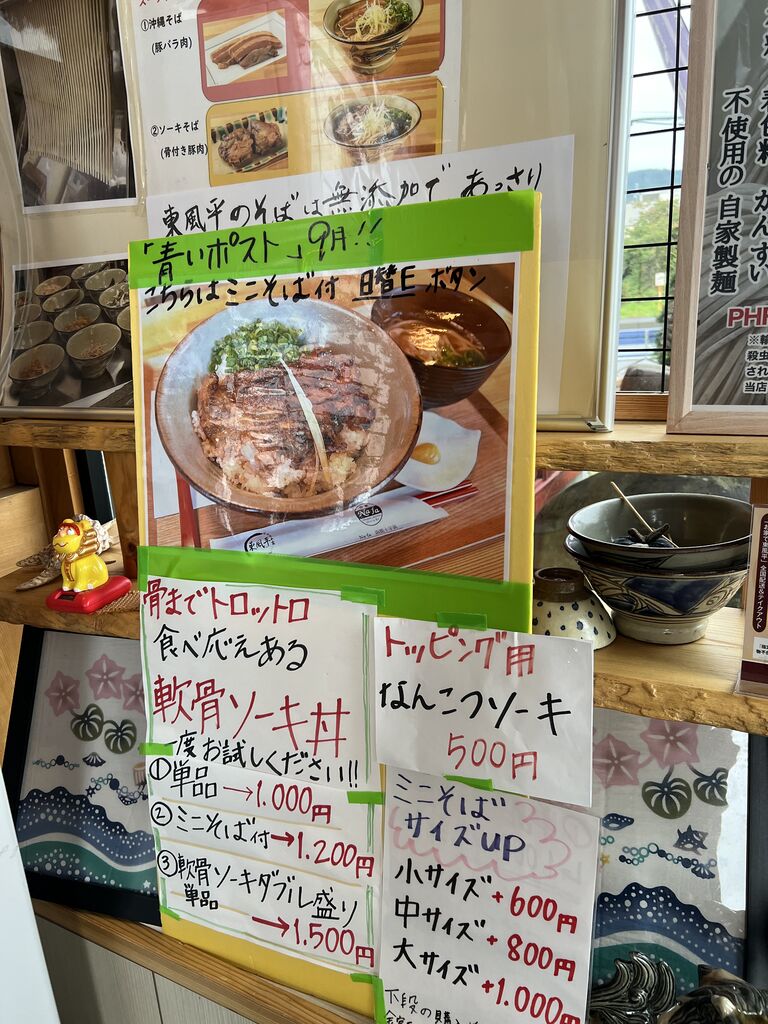 ①沖縄そば
(豚バラ肉)
②ソーキそば
(骨付き豚肉)
東風平のそばは無添加で あっさり
「青いポスト」9月!!
こちらはミニそば付 日替E ボタン
東風平
骨までトロットロ
食べ応えある
軟骨ソーキ丼
一度お試しください!!
①単品→1.000円
②ミニそば付→1.200円
③軟骨ソーキダブル盛り
単品
→1.500円
トッピング用
なんこつソーキ
500円
ミニそば
サイズUP
小サイズ+600円
中サイズ+800円
大サイズ+1.000円
下段の購
着色料 かんすい
不使用の 自家製麺
殺虫
され
当店
全国配送&テイクアウト